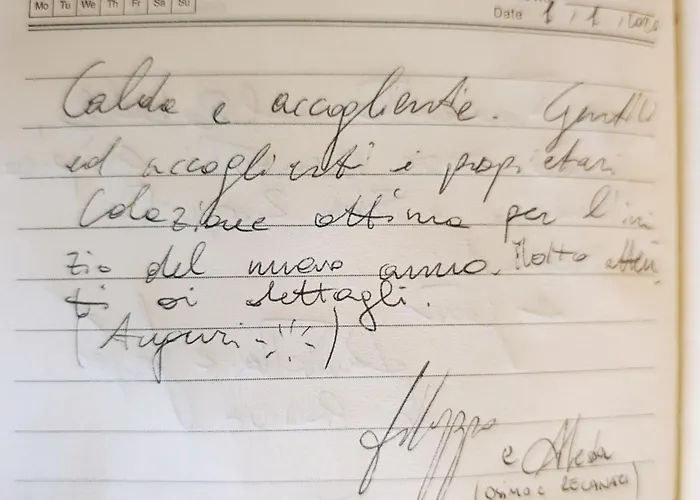 Mo Tu We Th Fr Sa Su
Date 1/1/2020
Calda e accogliente. Gentili
ed accoglienti i proprietari
Colazione ottima per l'ini
zio del nuovo anno. Molto atten
ti ai dettagli.
(Auguri)
Filippo
e Alleda
(OSIMO e RECANATI)